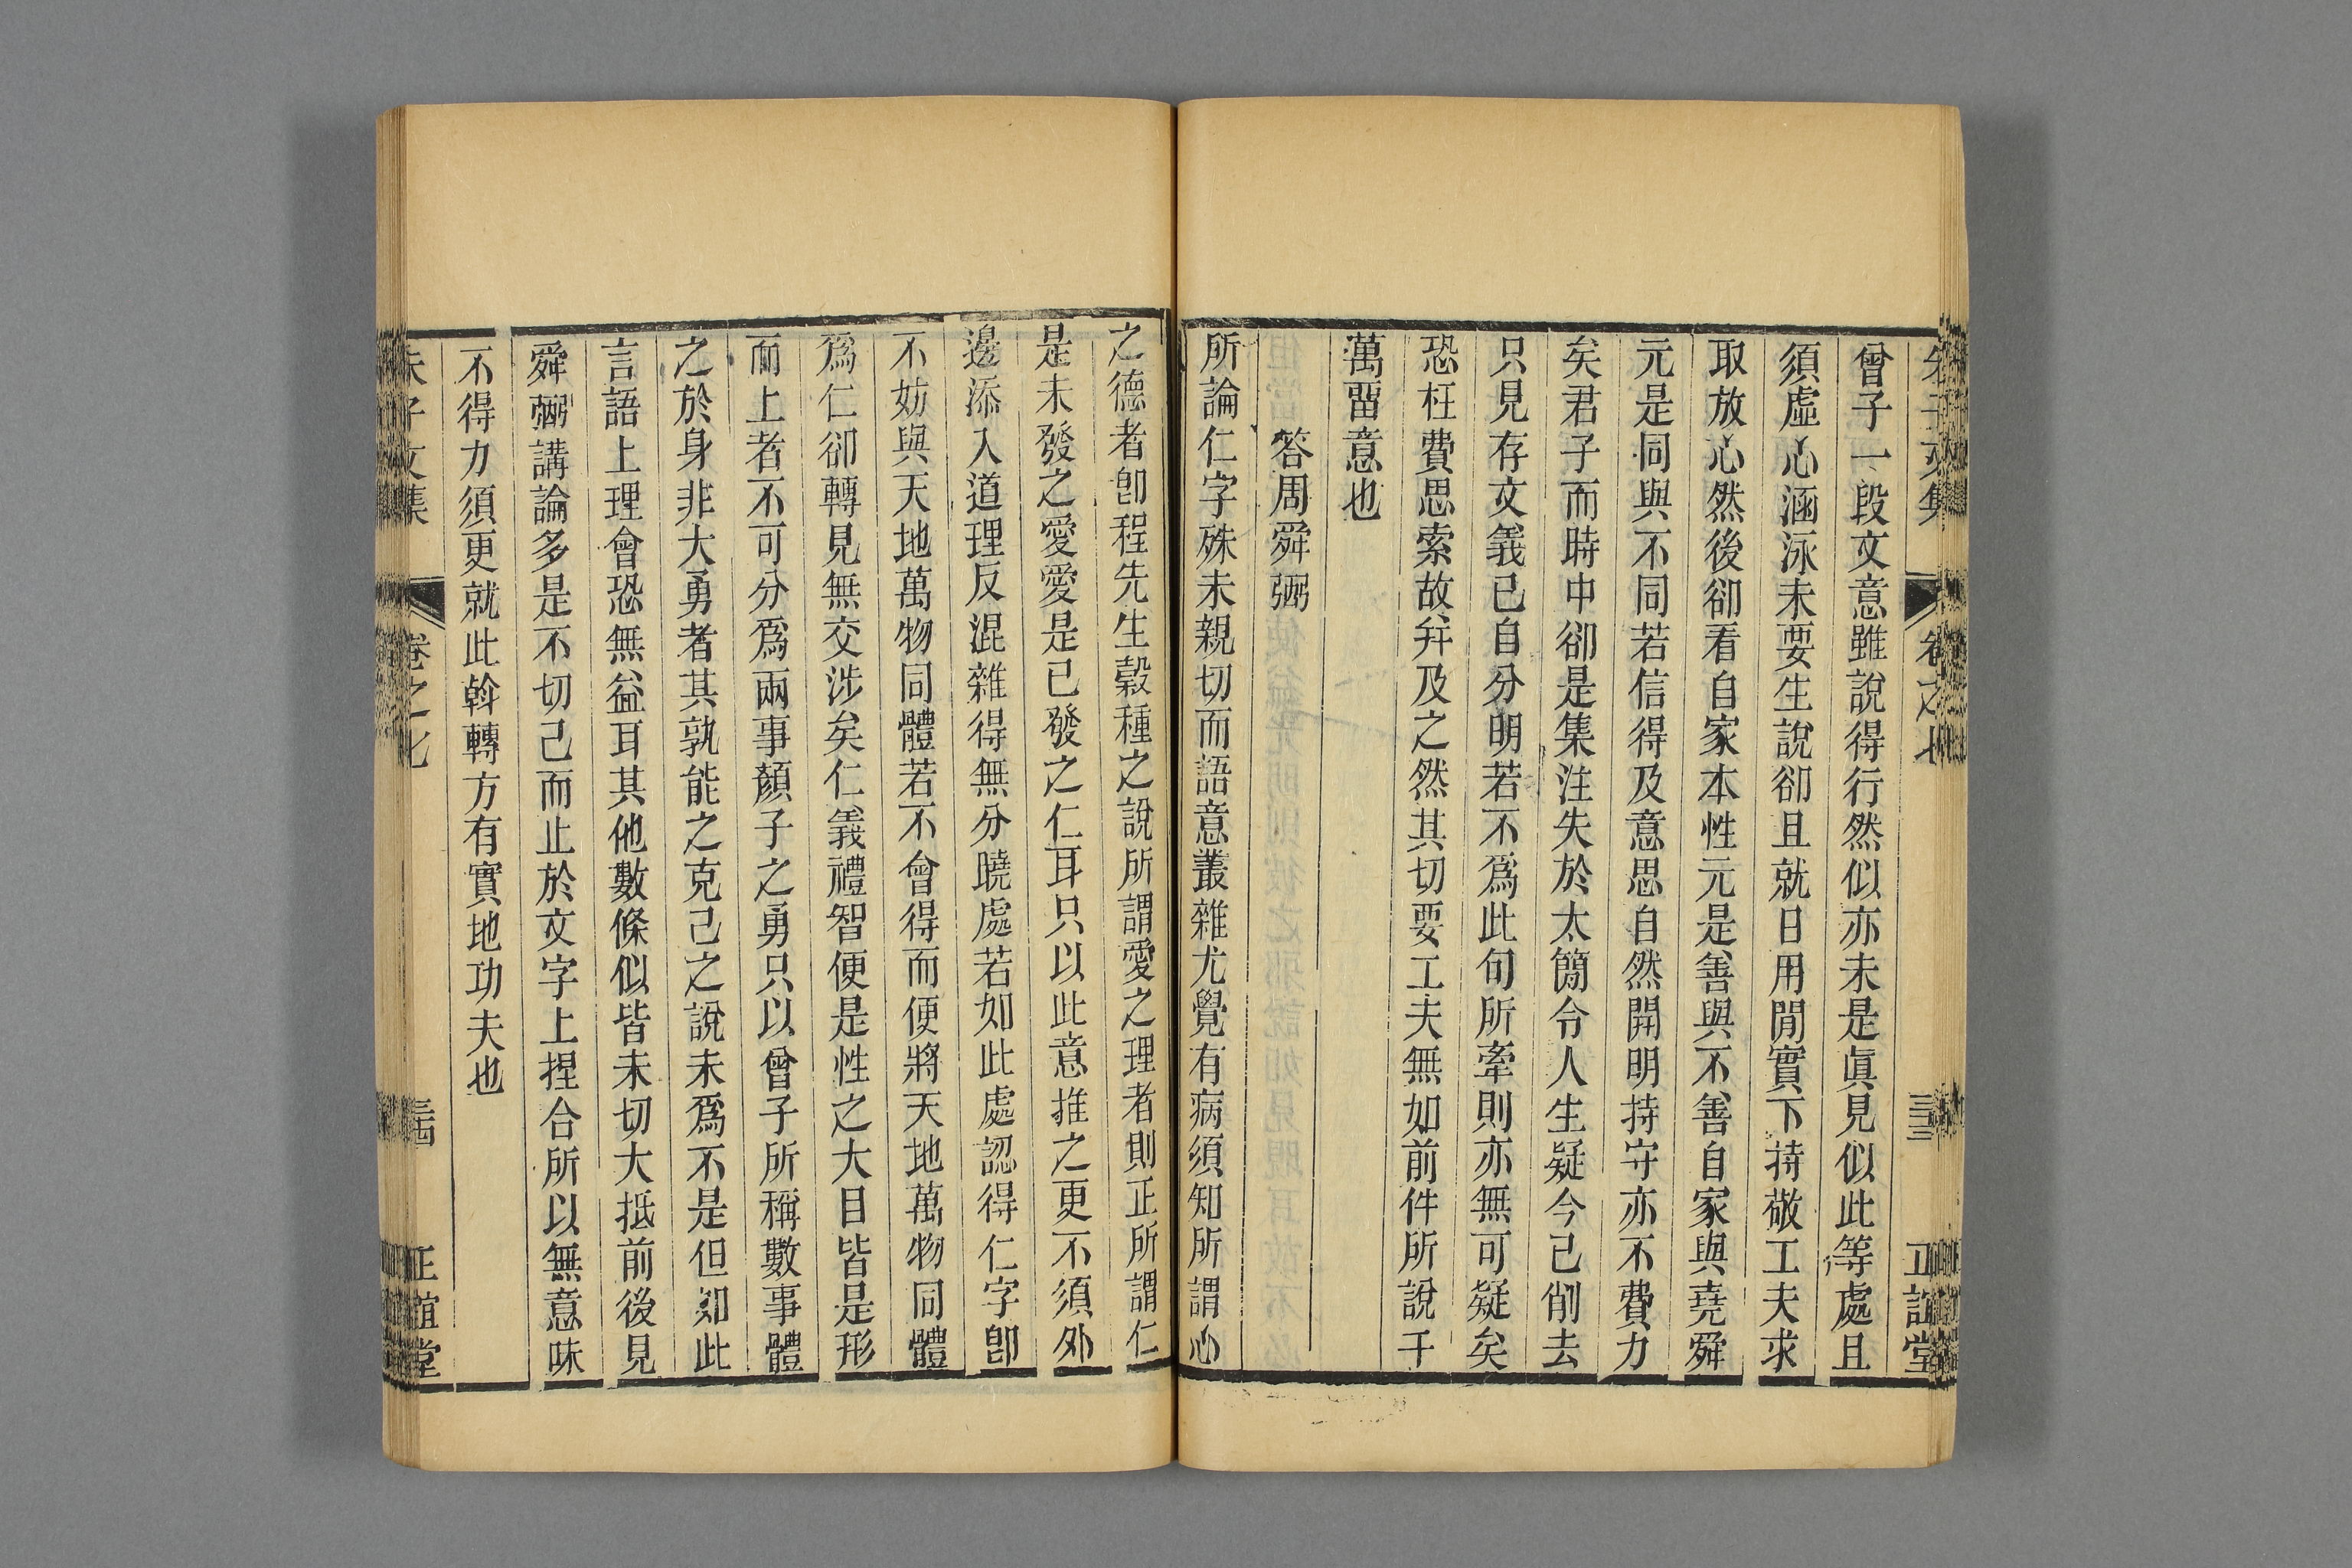 曾子一段文意雖說得行然似亦未是眞見似此等處且
須虛心涵泳未要生說卻且就日用閒實下持敬工夫求
取放心然後卻看自家本性元是善與不善自家與堯舜
元是同與不同若信得及意思自然開明持守亦不費力
矣君子而時中卻是集注失於太簡令人生疑今已削去
只見存文義已自分明若不爲此句所牽則亦無可疑矣
恐枉費思索故幷及之然其切要工夫無如前件所說千
萬畱意也
答周舜弼
所論仁字殊未親切而語意叢雜尤覺有病須知所謂心
之德者卽程先生穀種之說所謂愛之理者則正所謂仁
是未發之愛愛是已發之仁耳只以此意推之更不須外
邊添入道理反混雜得無分曉處若如此處認得仁字卽
不妨與天地萬物同體若不會得而便將天地萬物同體
爲仁卻轉見無交涉矣仁義禮智便是性之大目皆是形
而上者不可分爲兩事顏子之勇只以曾子所稱數事體
之於身非大勇者其孰能之克己之說未爲不是但如此
言語上理會恐無益耳其他數條似皆未切大抵前後見
舜弼講論多是不切己而止於文字上捏合所以無意味
不得力須更就此斡轉方有實地功夫也
朱子文集
卷之七
正誼堂